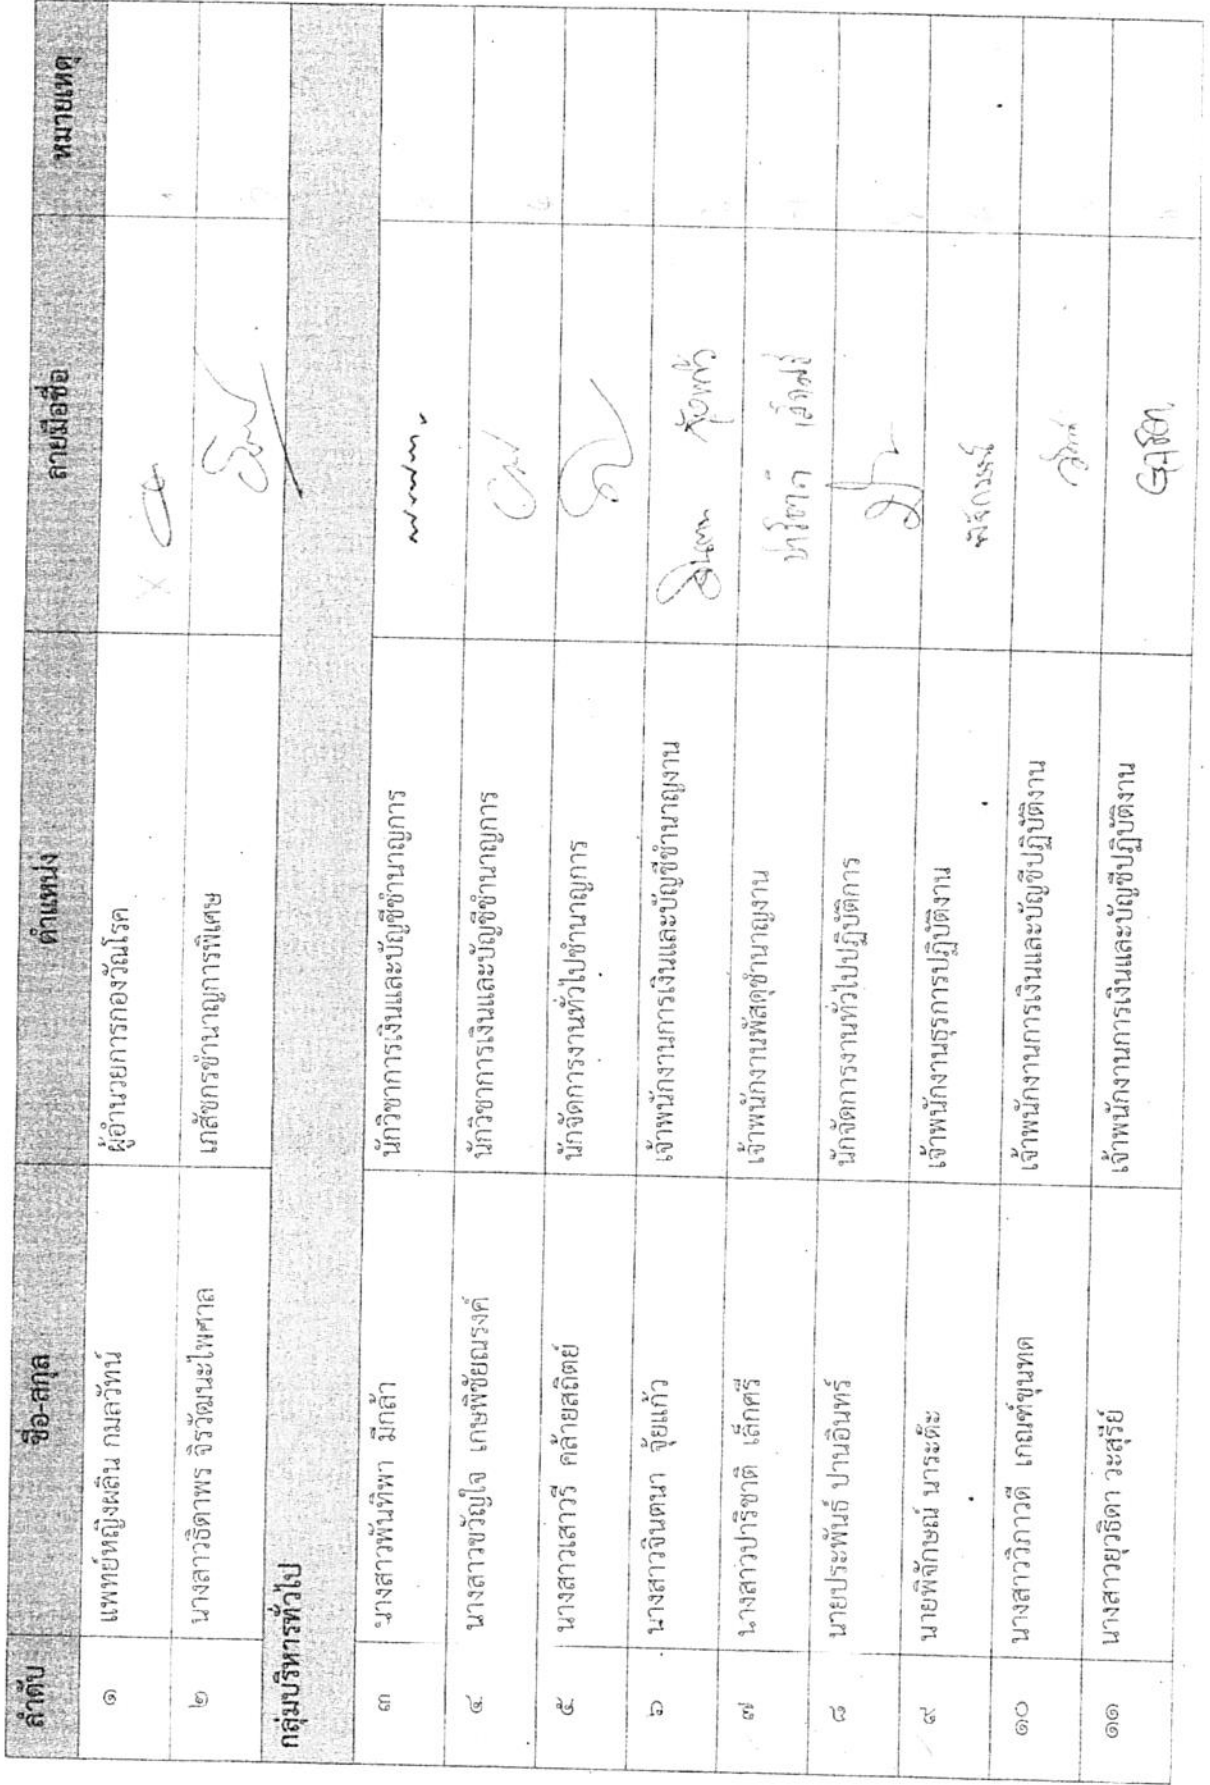 ลำดับ ชื่อ-สกุล ตำแหน่ง ลายมือชื่อ หมายเหตุ
๑ แพทย์หญิงผลิน กมลวัทน์ ผู้อำนวยการกองวัณโรค
๒ นางสาวธิดาพร จิรวัฒนะไพศาล เภสัชกรชำนาญการพิเศษ
กลุ่มบริหารทั่วไป
๓ นางสาวพันทิพา มีกล้า นักวิชาการเงินและบัญชีชำนาญการ
๔ นางสาวขวัญใจ เกษพิชัยณรงค์ นักวิชาการเงินและบัญชีชำนาญการ
๕ นางสาวเสาวรี คล้ายสถิตย์ นักจัดการงานทั่วไปชำนาญการ
๖ นางสาวจินตนา จุ้ยแก้ว เจ้าพนักงานการเงินและบัญชีชำนาญงาน จินตนา จุ้ยแก้ว
๗ นางสาวปาริชาติ เล็กศรี เจ้าพนักงานพัสดุชำนาญงาน ปาริชาติ เล็กศรี
๘ นายประพันธ์ ปานอินทร์ นักจัดการงานทั่วไปปฏิบัติการ
๙ นายพิจักษณ์ นาระต๊ะ เจ้าพนักงานธุรการปฏิบัติงาน พิจักษณ์
๑๐ นางสาววิภาวดี เกณฑ์ขุนทด เจ้าพนักงานการเงินและบัญชีปฏิบัติงาน
๑๑ นางสาวยุวธิดา วะสุรีย์ เจ้าพนักงานการเงินและบัญชีปฏิบัติงาน ยุวธิดา